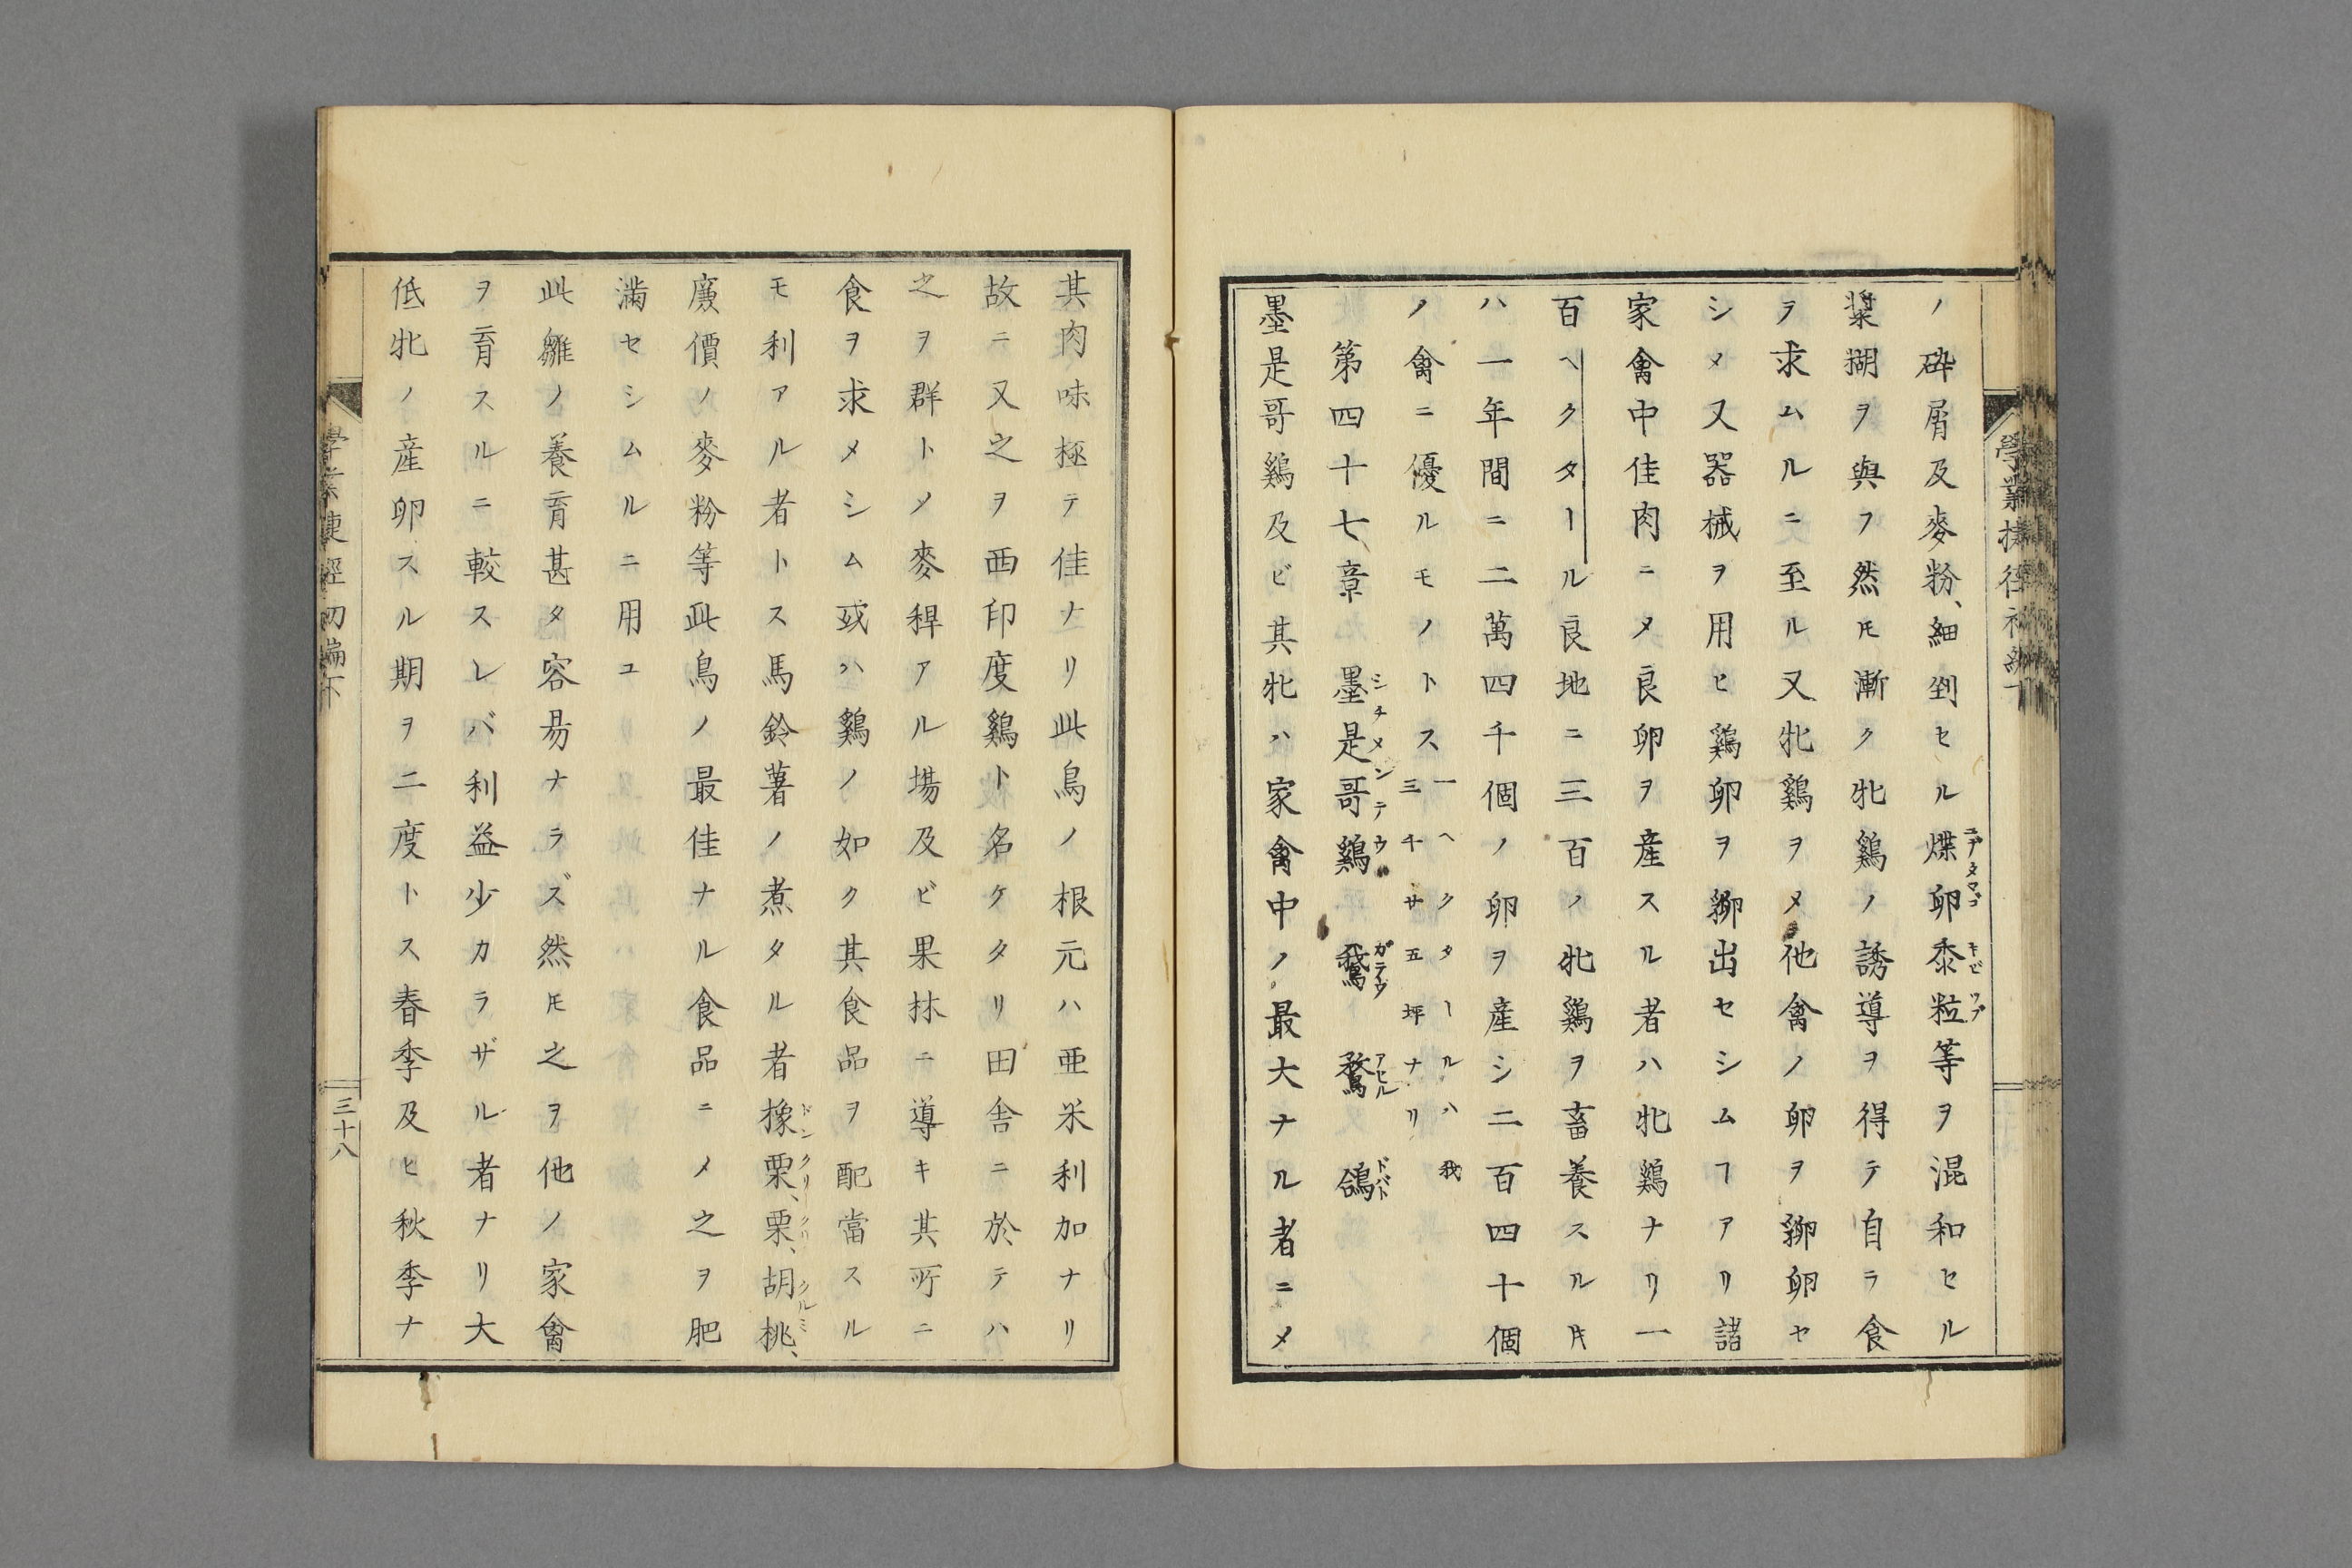 ノ碎屑及麥粉、細剉セル煠卵黍粒等ヲ混和セル
ニデタマゴ キビ ツブ
糊ヲ與フ然𪜈漸ク牝鷄ノ誘導ヲ得テ自ラ食
ヲ求ムルニ至ル又牝鷄ヲメ他禽ノ卵ヲ孵卵セ
シメ又器械ヲ用ヒ鷄卵ヲ孵出セシムヿアリ諸
家禽中佳肉ニメ良卵ヲ産スル者ハ牝鷄ナリ一
百ヘクタール良地ニ三百ノ牝鷄ヲ畜養スル𪜈
ハ一年間ニ二萬四千個ノ卵ヲ産シ二百四十個
ノ禽ニ優ルモノトス
一ヘクタールハ我
三千サ五坪ナリ
第四十七章 墨是哥鷄 鵞 鶩 鴿
シチメンテウ ガテウ アヒル ドバト
墨是哥鷄及ビ其牝ハ家禽中ノ最大ナル者ニメ
其肉味極テ佳ナリ此鳥ノ根元ハ亜米利加ナリ
故ニ又之ヲ西印度鷄ト名ケタリ田舎ニ於テハ
之ヲ群トメ麥稈アル場及ビ果林ニ導キ其所ニ
食ヲ求メシム或ハ鷄ノ如ク其食品ヲ配當スル
モ利アル者トス馬鈴薯ノ煮タル者橡栗、栗、胡桃、
ドングリ クリ クルミ
廉價ノ麥粉等此鳥ノ最佳ナル食品ニメ之ヲ肥
満セシムルニ用ユ
此雛ノ養育甚タ容易ナラズ然𪜈之ヲ他ノ家禽
ヲ育スルニ較スレバ利益少カラザル者ナリ大
低牝ノ産卵スル期ヲ二度トス春季及ヒ秋季ナ
三十八